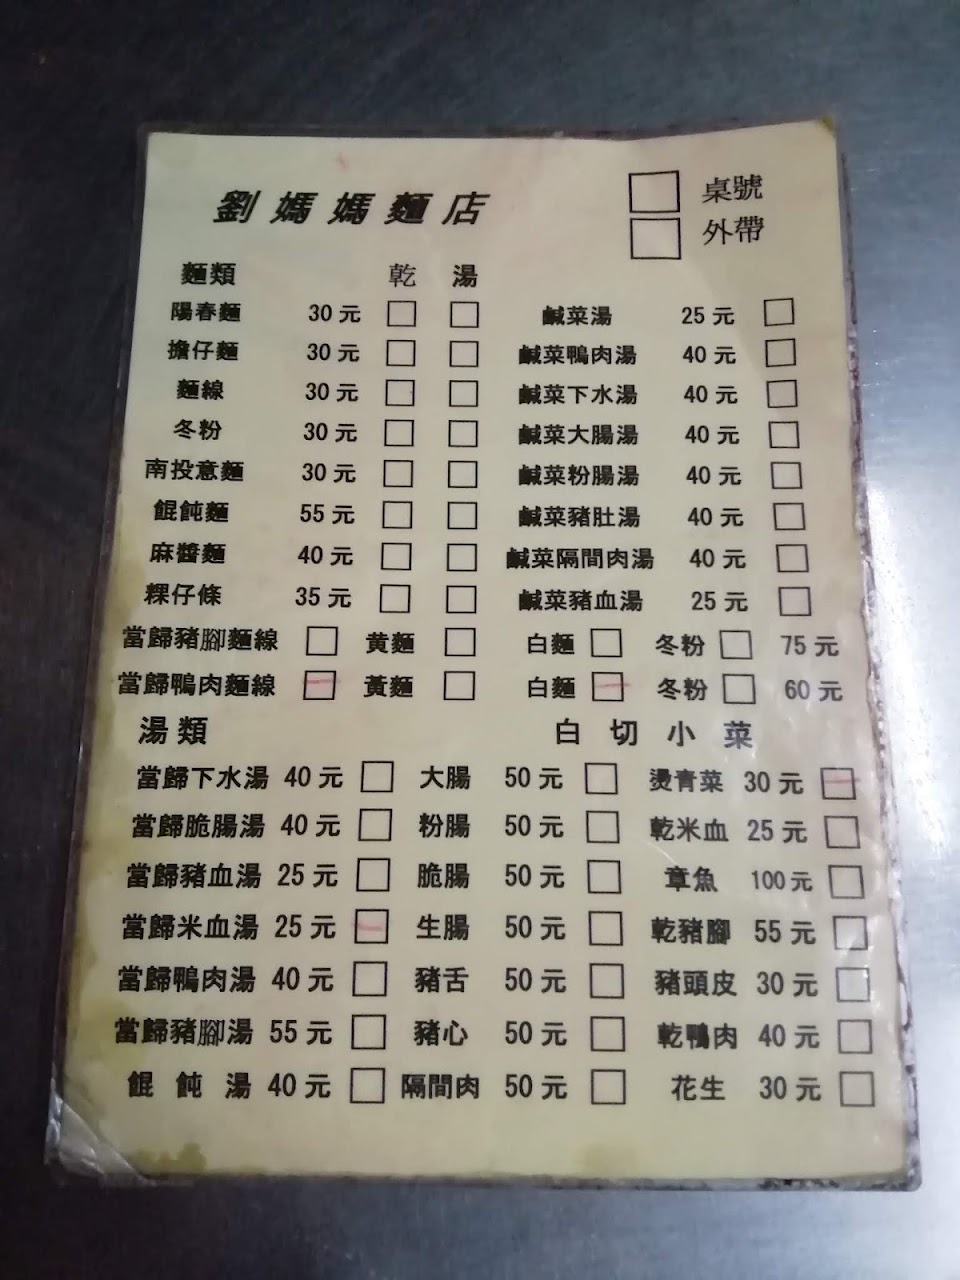 劉媽媽麵店
□ 桌號
□ 外帶
麵類 乾 湯
陽春麵 30元 □ □ 鹹菜湯 25元 □
擔仔麵 30元 □ □ 鹹菜鴨肉湯 40元 □
麵線 30元 □ □ 鹹菜下水湯 40元 □
冬粉 30元 □ □ 鹹菜大腸湯 40元 □
南投意麵 30元 □ □ 鹹菜粉腸湯 40元 □
餛飩麵 55元 □ □ 鹹菜豬肚湯 40元 □
麻醬麵 40元 □ □ 鹹菜隔間肉湯 40元 □
粿仔條 35元 □ □ 鹹菜豬血湯 25元 □
當歸豬腳麵線 □ 黃麵 □ 白麵 □ 冬粉 □ 75元
當歸鴨肉麵線 □ 黃麵 □ 白麵 □ 冬粉 □ 60元
湯類 白切小菜
當歸下水湯 40元 □ 大腸 50元 □ 燙青菜 30元 □
當歸脆腸湯 40元 □ 粉腸 50元 □ 乾米血 25元 □
當歸豬血湯 25元 □ 脆腸 50元 □ 章魚 100元 □
當歸米血湯 25元 □ 生腸 50元 □ 乾豬腳 55元 □
當歸鴨肉湯 40元 □ 豬舌 50元 □ 豬頭皮 30元 □
當歸豬腳湯 55元 □ 豬心 50元 □ 乾鴨肉 40元 □
餛飩湯 40元 □ 隔間肉 50元 □ 花生 30元 □